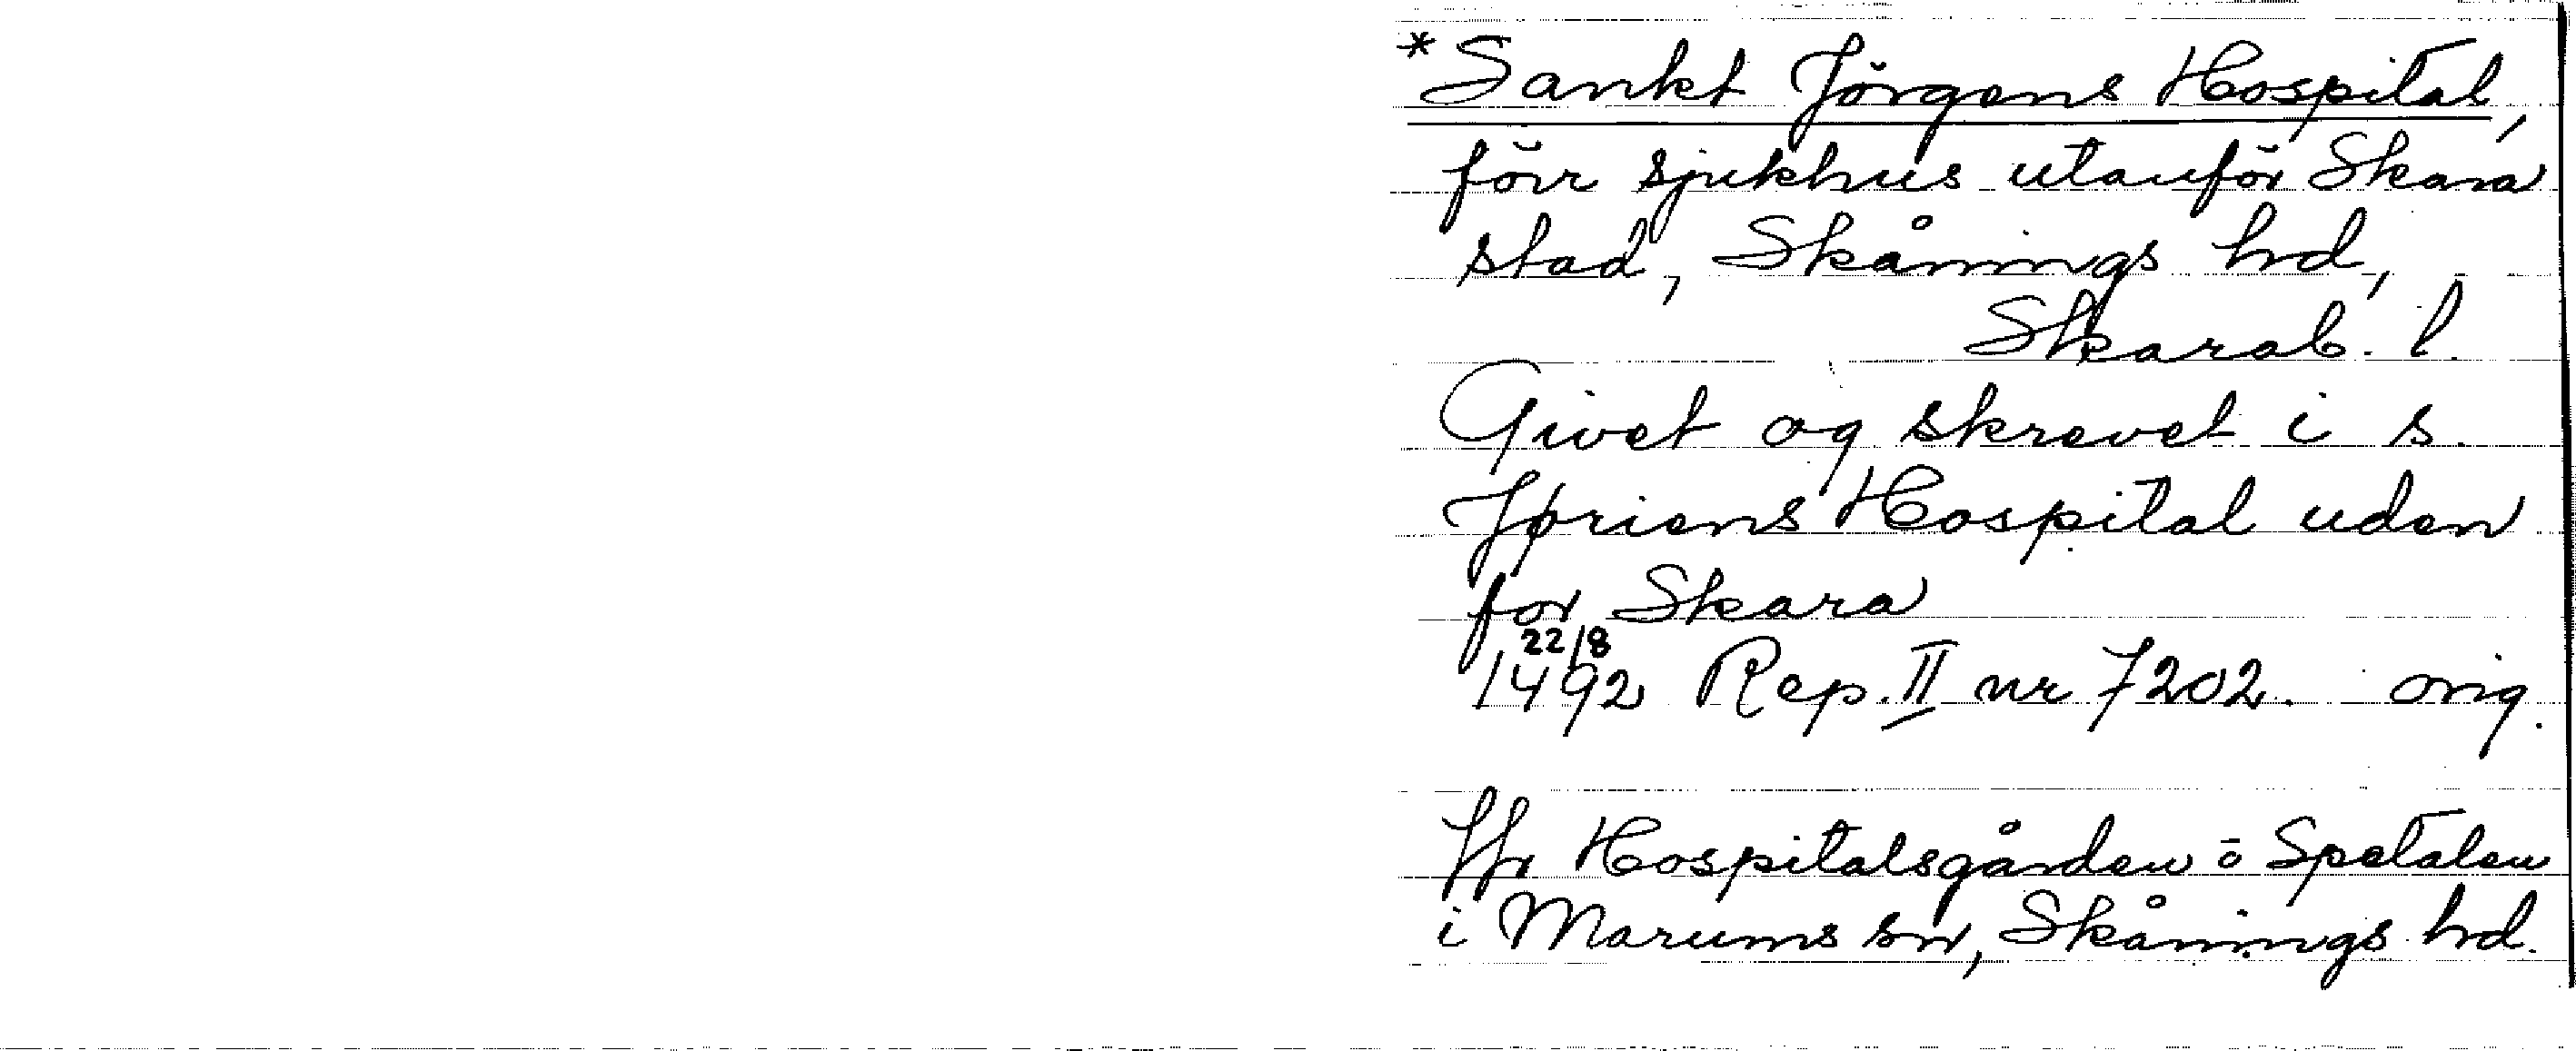 *Sankt Jörgens Hospital,
förr sjukhus utanför Skara
stad, Skånings hd,
Skarab. l.
Givet og skrevet i s.
Jøriens Hospital uden
for Skara
22/8
1492 Rep. II nr 7202. orig.
Jfr Hospitalsgården o Spetalen
i Marums sn, Skånings hd.